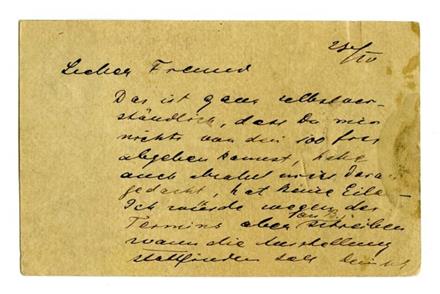 25/IV
Lieber Freund
Das ist ganz selbstver-
ständlich, dass Du mir
nichts von den 100 frcs
abgeben kannst, habe
auch nicht
gedacht, hat keine Eile
Ich würde wegen des
Termins aber schreiben
wann die Ausstellung
stattfinden soll